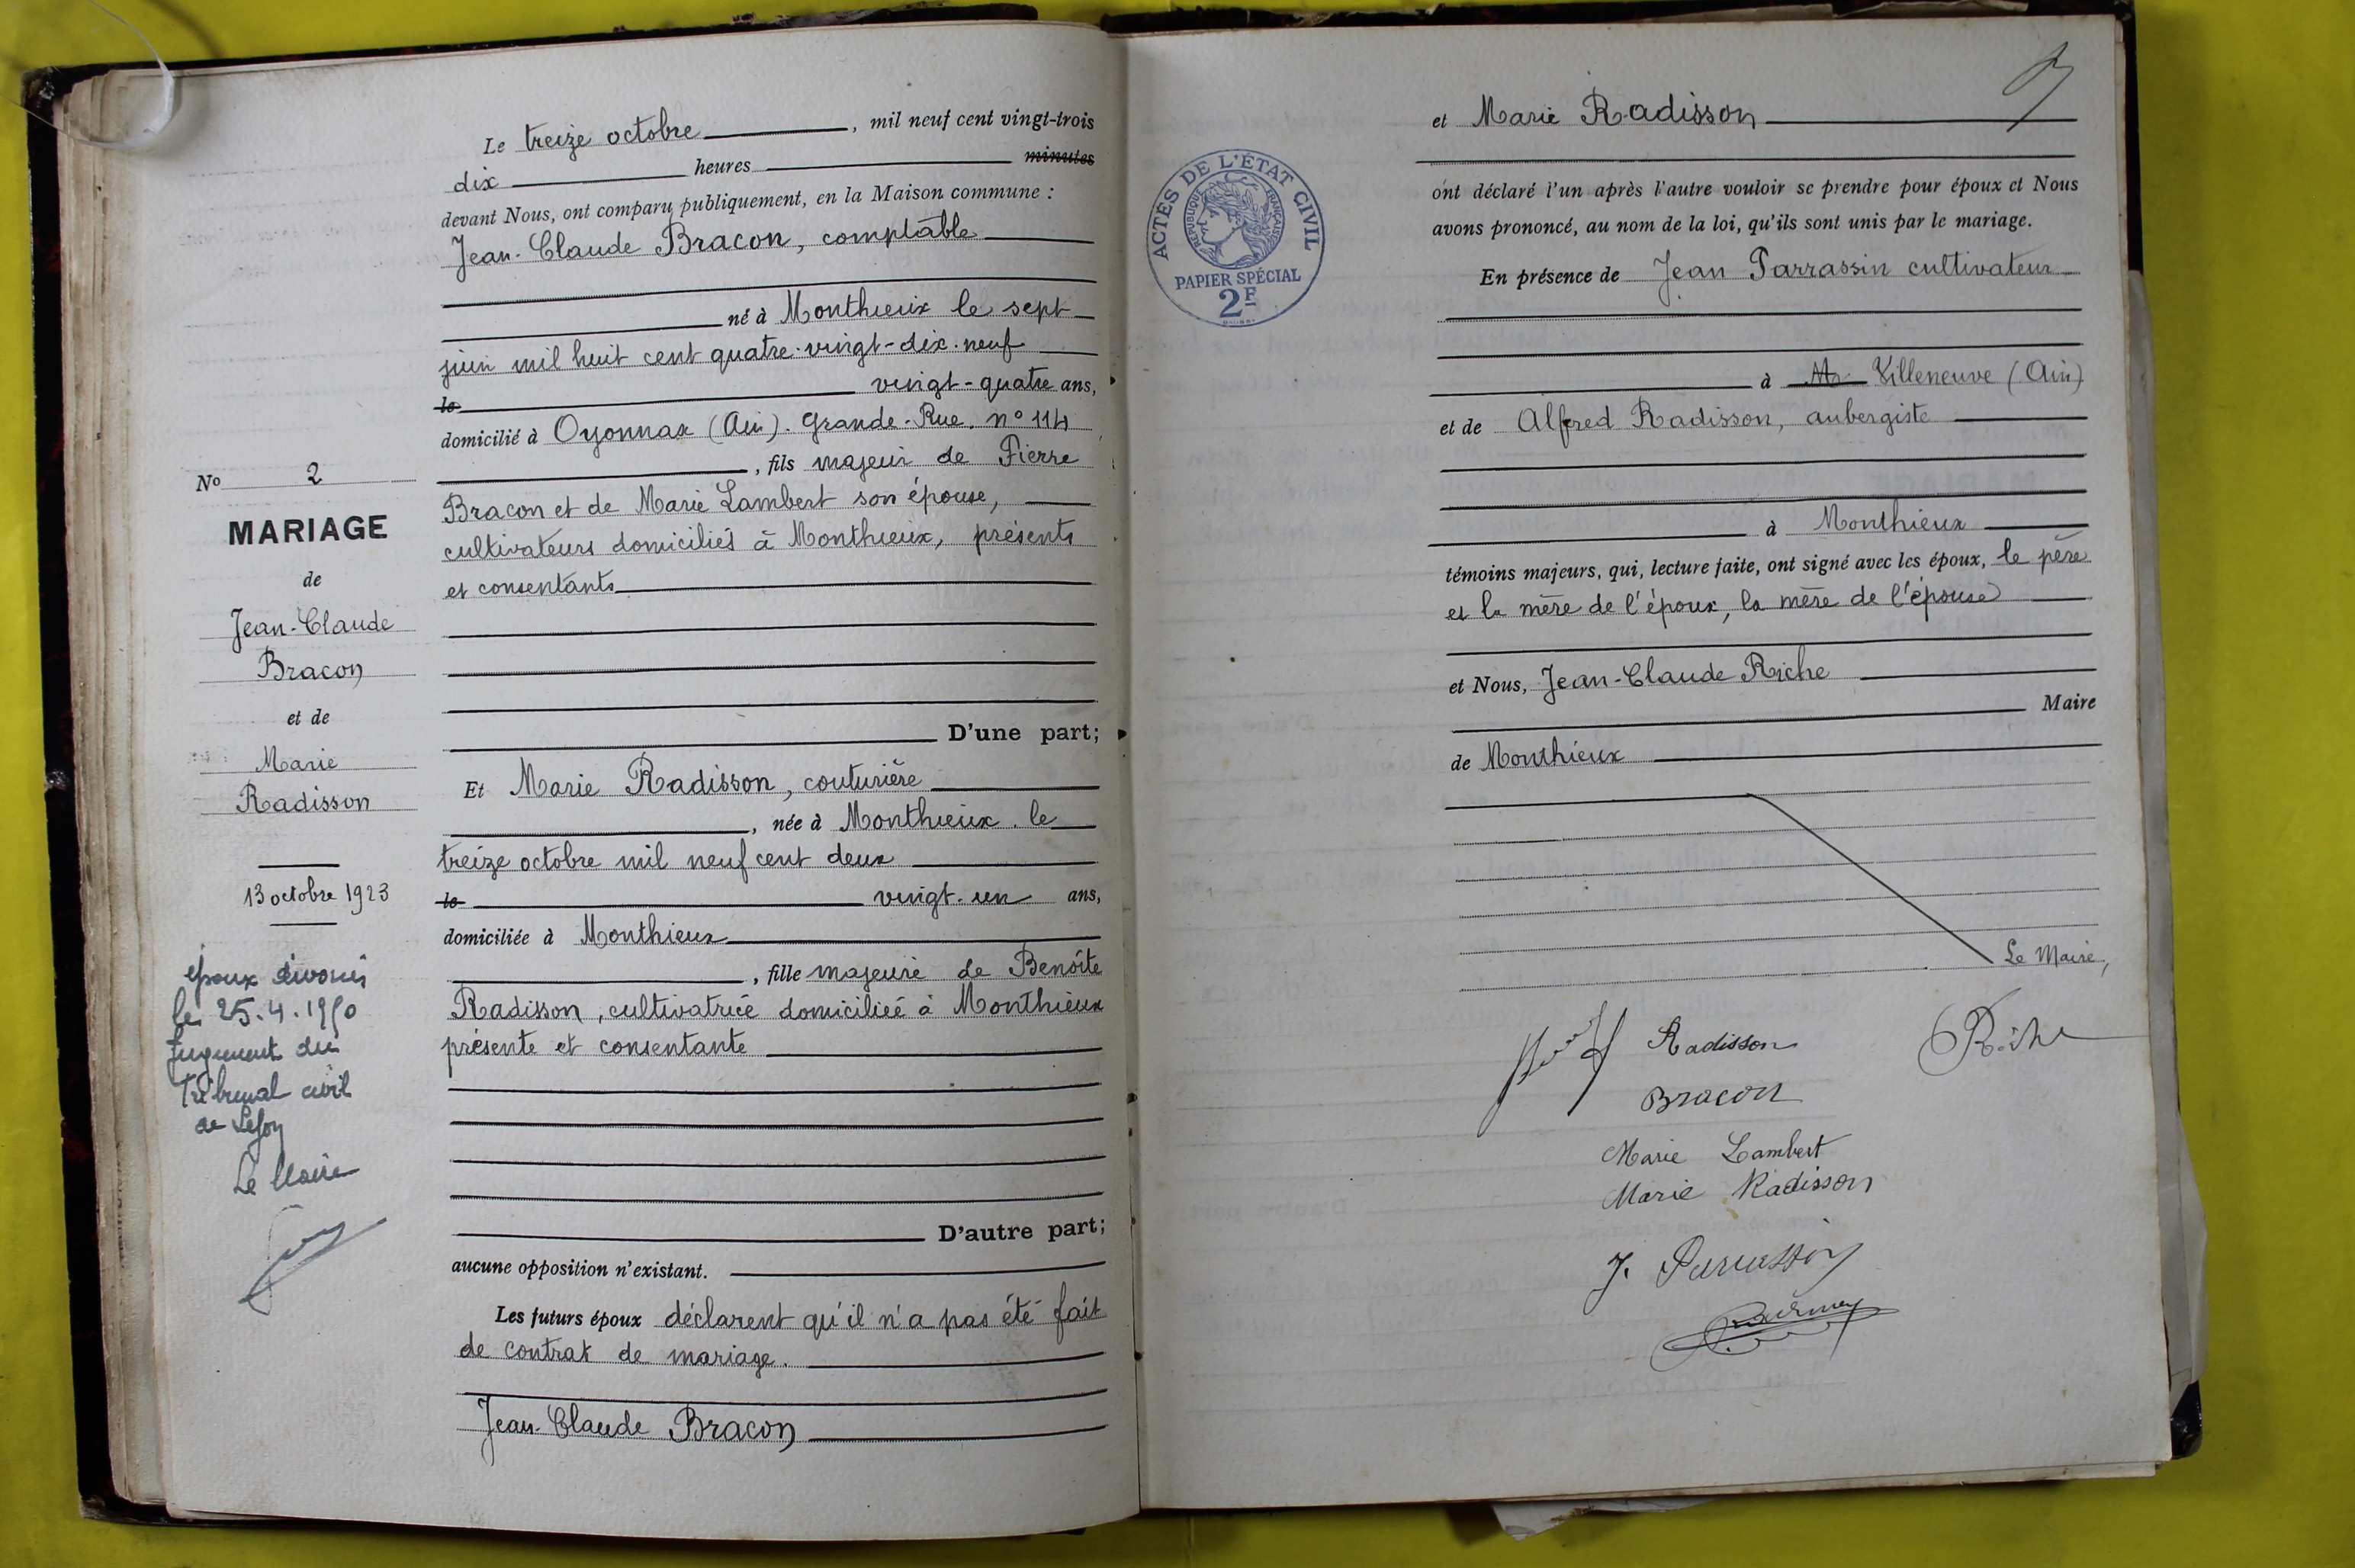 Le treize octobre, mil neuf cent vingt-trois
dix heures minutes
devant Nous, ont comparu publiquement, en la Maison commune :
Jean-Claude Bracon, comptable
né à Monthieux le sept
juin mil huit cent quatre-vingt-dix-neuf
le vingt-quatre ans,
domicilié à Oyonnax (Ain). Grande-Rue. n° 114
, fils majeur de Pierre
Bracon et de Marie Lambert son épouse,
cultivateurs domiciliés à Monthieux, présents
et consentants
D'une part;
Et Marie Radisson, couturière
, née à Monthieux. le
treize octobre mil neuf cent deux
le vingt-un ans,
domiciliée à Monthieux
, fille majeure de Benoîte
Radisson, cultivatrice domiciliée à Monthieux
présente et consentante
D'autre part;
aucune opposition n'existant.
Les futurs époux déclarent qu'il n'a pas été fait
de contrat de mariage.
Jean-Claude Bracon
No 2
MARIAGE
de
Jean-Claude
Bracon
et de
Marie
Radisson
13 octobre 1923
époux divorcés
le 25.4.1950
Jugement du
Tribunal civil
de
Le Maire
et Marie Radisson
ont déclaré l'un après l'autre vouloir se prendre pour époux et Nous
avons prononcé, au nom de la loi, qu'ils sont unis par le mariage.
En présence de Jean Parrassin cultivateur
à M Villeneuve (Ain)
et de Alfred Radisson, aubergiste
à Monthieux
témoins majeurs, qui, lecture faite, ont signé avec les époux, le père
et la mère de l'époux, la mère de l'épouse
et Nous, Jean-Claude Riche
Maire
de Monthieux
Le Maire,
Radisson
Riche
Bracon
Marie Lambert
Marie Radisson
J. Parrassin
ACTES DE L'ÉTAT CIVIL
RÉPUBLIQUE FRANÇAISE
PAPIER SPÉCIAL
2F